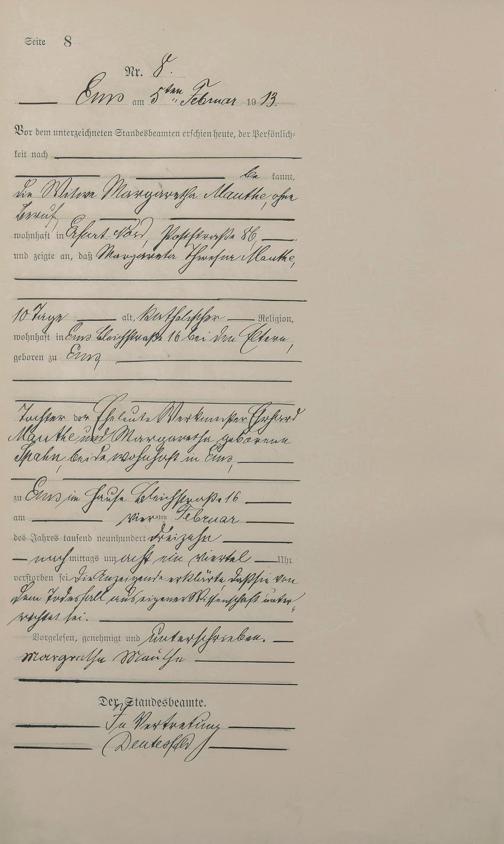 Seite 8
Nr. 8.
Ems am 5ten Februar 1913
Vor dem unterzeichneten Standesbeamten erschien heute, der Persönlich-
keit nach
be kannt,
die Witwe Margaretha Mauthe, ohne
Beruf,
wohnhaft in Erfurt Nord, Poststraße 86
und zeigte an, daß Margareta Theresia Mauthe,
10 Tage alt, katholischer Religion,
wohnhaft in Ems Bleichstraße 16 bei den Eltern,
geboren zu Ems
Tochter der Eheleute Werkmeister Erhard
Mauthe und Margaretha geborenen
Spahn, beide wohnhaft in Ems,
zu Ems im Hause Bleichstraße 16
am vierten Februar
des Jahres tausend neunhundert dreizehn
nachmittags um acht ein viertel Uhr
verstorben sei. Die Anzeigende erklärte, daß sie von
dem Todesfall aus eigener Wissenschaft unter-
richtet sei.
Vorgelesen, genehmigt und unterschrieben.
Margretha Mauthe
Der Standesbeamte.
In Vertretung